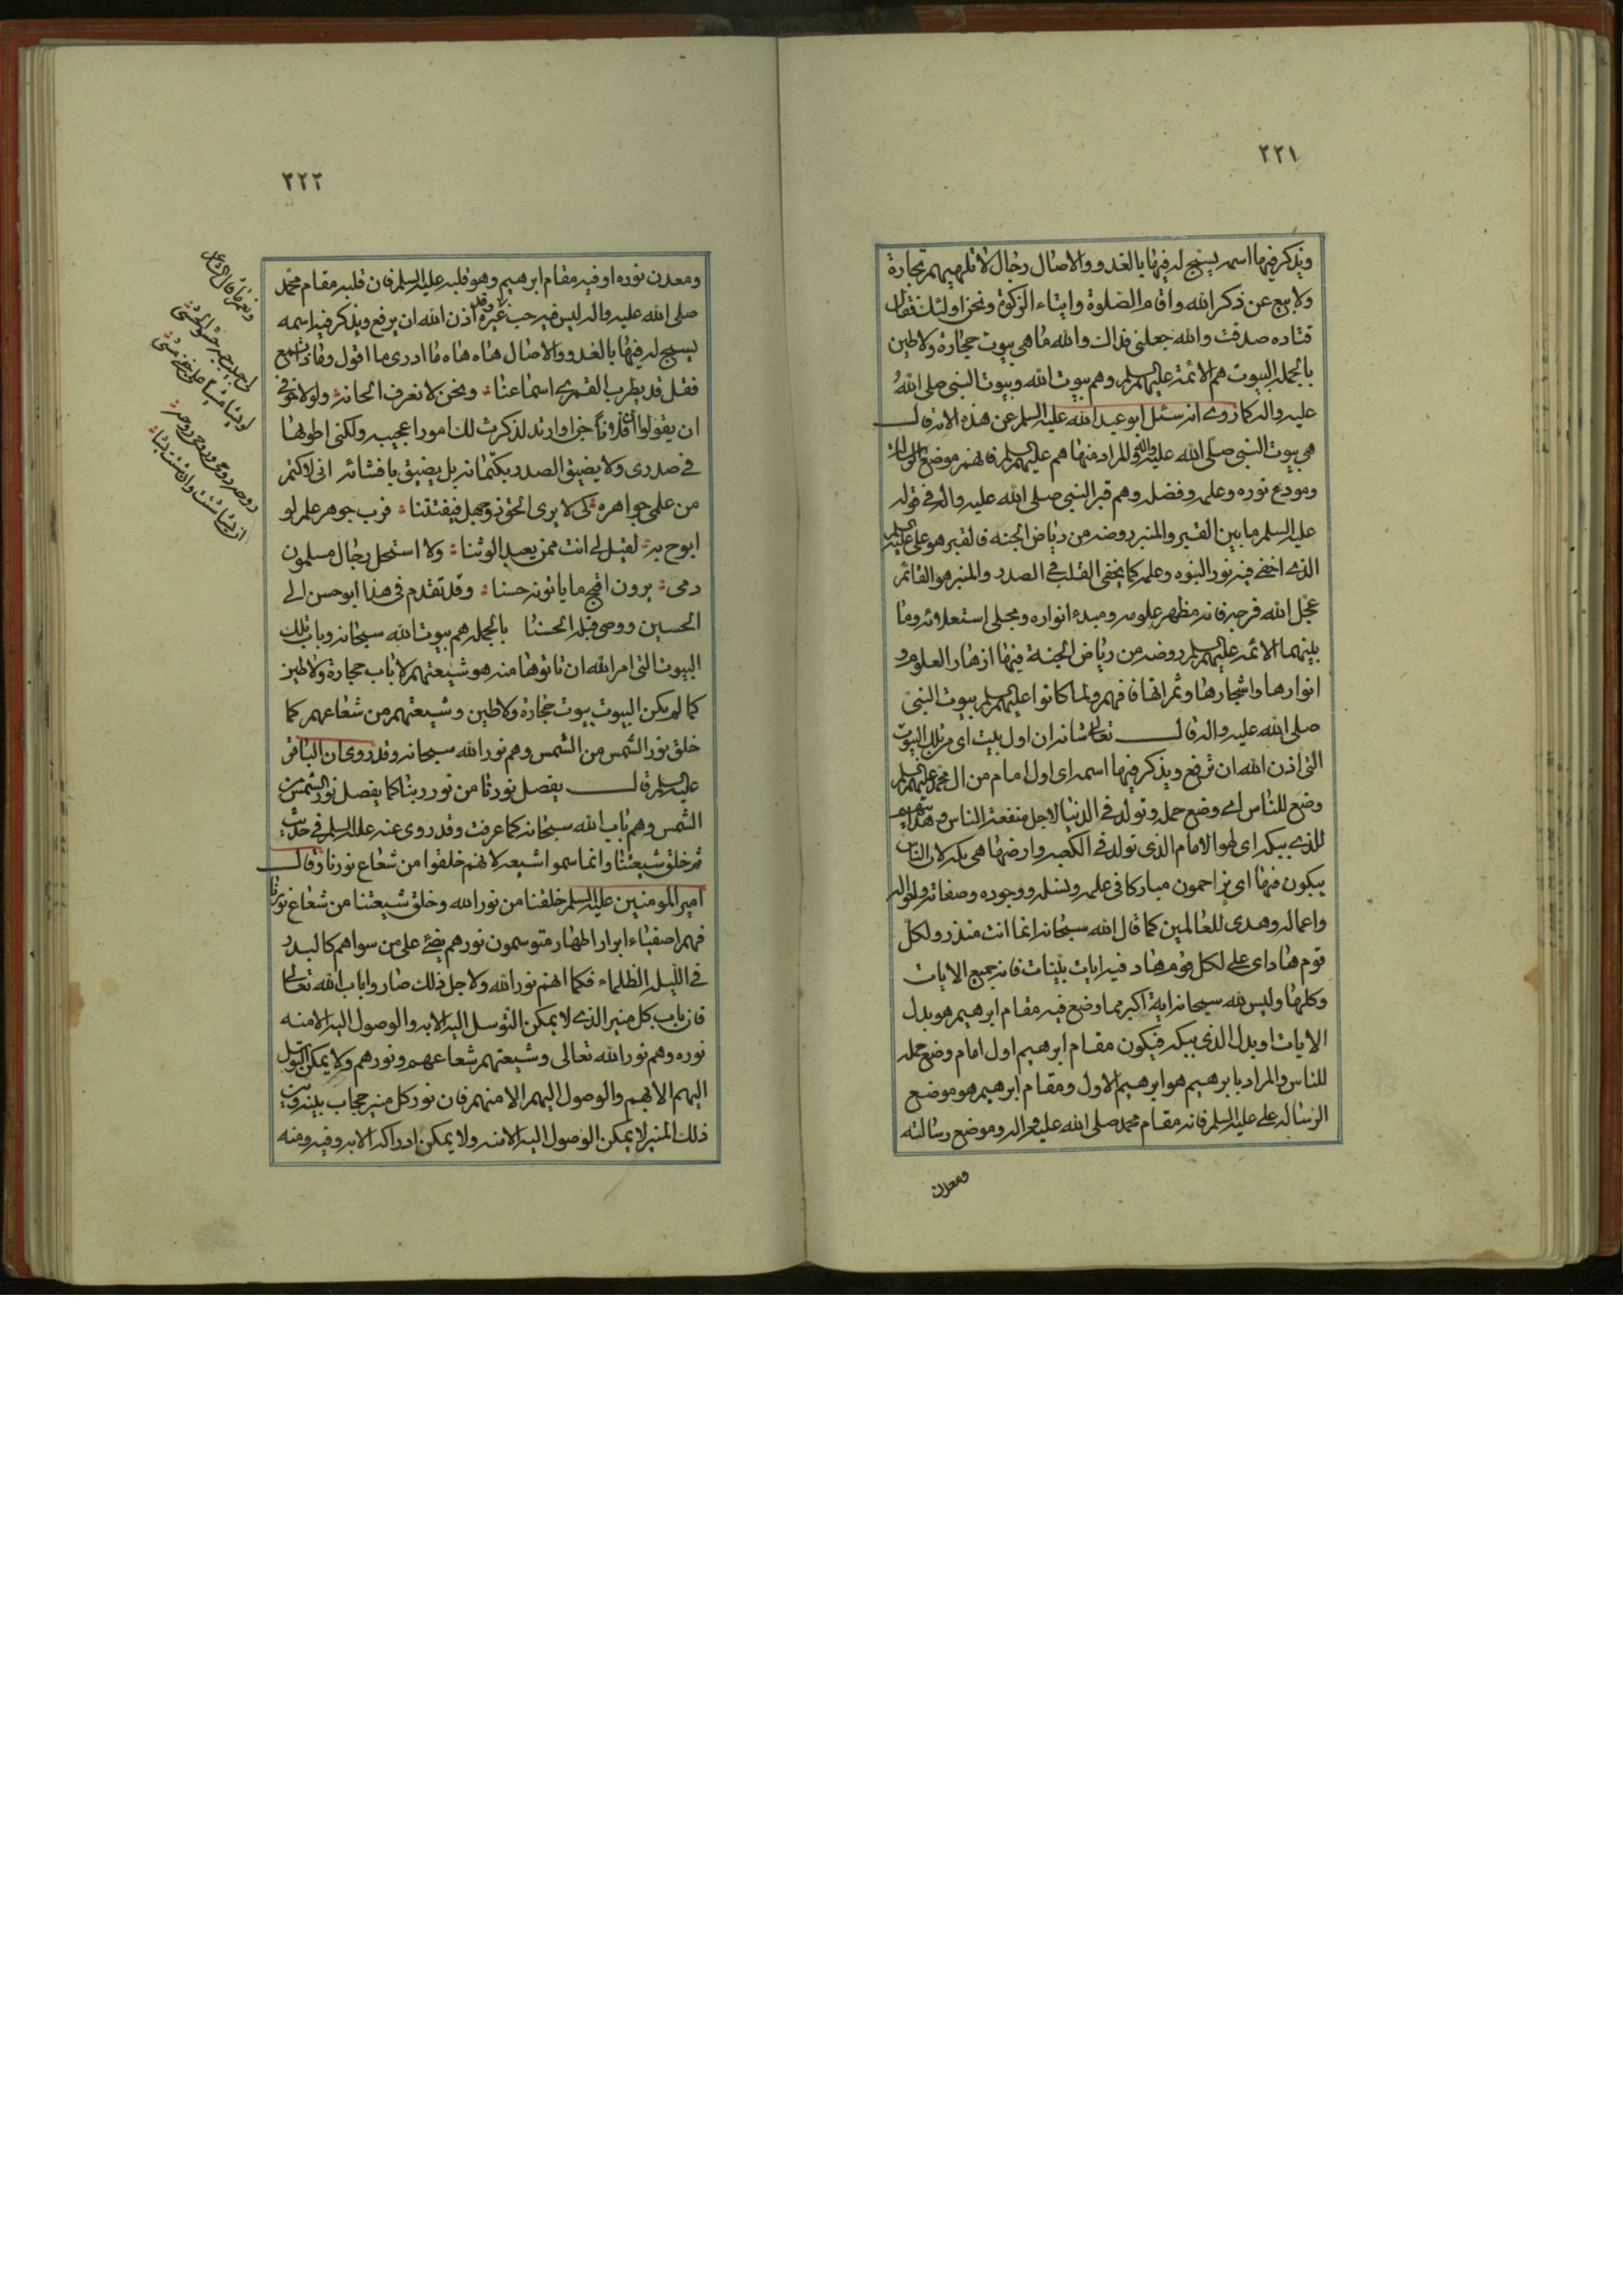 ٢٢١
ويذكر فيها اسمه يسبح له فيها بالغدو والاصال رجال لا تلهيهم تجارة
ولا بيع عن ذكر الله واقام الصلوة وايتاء الزكوة ونحن اولئك فقال
قتاده صدقت والله جعلنى فداك والله ما هى بيوت حجارة ولا طين
بالجمله البيوت هم الائمة عليهم السلم وهم بيوت الله وبيوت النبى صلى الله
عليه واله كما روى انه سئل ابو عبد الله عليه السلم عن هذه الاية قال
هى بيوت النبى صلى الله عليه واله والمراد منها هم عليهم السلم فانهم موضع الرسالة
ومودع نوره وعلمه وفضله وهم قبر النبى صلى الله عليه واله فى قوله
عليه السلم ما بين القبر والمنبر روضه من رياض الجنه فالقبر هو على عليه السلم
الذى اخفى فيه نور النبوه وعلمه كما يخفى القلب فى الصدر والمنبر هو القائم
عجل الله فرجه فانه مظهر علومه ومبدء انواره ومجلى استعلائه وما
بينهما الائمه عليهم السلم روضه من رياض الجنة فيها ازهار العلوم و
انوارها واشجارها وثمراتها فافهم ولما كانوا عليهم السلم بيوت النبى
صلى الله عليه واله قال تعالى شانه ان اول بيت اى من تلك البيوت
التى اذن الله ان ترفع ويذكر فيها اسمه اى اول امام من ال محمد عليهم السلم
وضع للناس اى وضع حمله وتولد فى الدنيا لاجل منفعة الناس وهدايتهم
للذى ببكة اى لهو الامام الذى تولد فى الكعبه وارضها هى بكه لان الناس
يبكون فيها اى يزاحمون مباركا فى علمه ونسله ووجوده وصفاته واحواله
واعماله وهدى للعالمين كما قال الله سبحانه انما انت منذر ولكل
قوم هاد اى على لكل قوم هاد فيه ايات بينات فانه جميع الايات
وكلها وليس لله سبحانه اية اكبر مما وضع فيه مقام ابرهيم هو بدل
الايات او بدل الذى ببكه فيكون مقام ابرهيم اول امام وضع حمله
للناس والمراد بابرهيم هو ابرهيم الاول ومقام ابرهيم هو موضع
الرساله على عليه السلم فانه مقام محمد صلى الله عليه واله وموضع رسالته
ومعدن
٢٢٢
ومعدن نوره او فيه مقام ابرهيم وهو قلبه عليه السلم فان قلبه مقام محمد
صلى الله عليه واله ليس فيه حب غيره وقد اذن الله ان يرفع ويذكر فيه اسمه
يسبح له فيها بالغدو والاصال هاه هاه ما ادرى ما اقول وماذا تسمع
فقل قد يطرب القمرى اسماعنا ونحن لا نعرف الحانه ولولا خوفى
ان يقولوا ان فلانا جن او ارتد لذكرت لك امورا عجيبه ولكنى اطويها
فى صدرى ولا يضيق الصدر بكتمانه بل يضيق بافشائه انى لاكتم
من علمى جواهره كى لا يرى الحق ذو جهل فيفتتنا فرب جوهر علم لو
ابوح به لقيل لى انت ممن يعبد الوثنا ولا استحل رجال مسلمون
دمى يرون اقبح ما ياتونه حسنا وقد تقدم فى هذا ابو حسن الى
الحسين ووصى قبله الحسنا بالجمله هم بيوت الله سبحانه وباب تلك
البيوت التى امر الله ان تاتوها منه هو شيعتهم لا باب حجارة ولا طين
كما لم يكن البيوت بيوت حجارة ولا طين وشيعتهم من شعاعهم كما
خلق نور الشمس من الشمس وهم نور الله سبحانه وقد روى ان الباقر
عليه السلم قال يفصل نورنا من نور ربنا كما يفصل نور الشمس من
الشمس وهم باب الله سبحانه كما عرفت وقد روى عنه عليه السلم فى حديث
ثم خلق شيعتنا وانما سموا شيعه لانهم خلقوا من شعاع نورنا وقال
امير المومنين عليه السلم خلقنا من نور الله وخلق شيعتنا من شعاع نورنا
فهم اصفياء ابرار اطهار متوسمون نورهم يضئ على من سواهم كالبدر
فى الليله الظلماء فكما انهم نور الله ولاجل ذلك صاروا باب الله تعالى
فان باب كل منير الذى لا يمكن التوسل اليه الا به والوصول اليه الا منه
نوره وهم نور الله تعالى وشيعتهم شعاعهم ونورهم ولا يمكن التوسل
اليهم الا بهم والوصول اليهم الا منهم فان نور كل منير حجاب بينه وبين
ذلك المنير لا يمكن الوصول اليه الا منه ولا يمكن ادراكه الا به وفيه ومنه
ونعم ما قال الشاعر
لى حبيب حبه حشو الحشى
لو يشا يمشى على خدى مشى
روحه روحى وروحى روحه
ان يشا شئت وان شئت يشاء